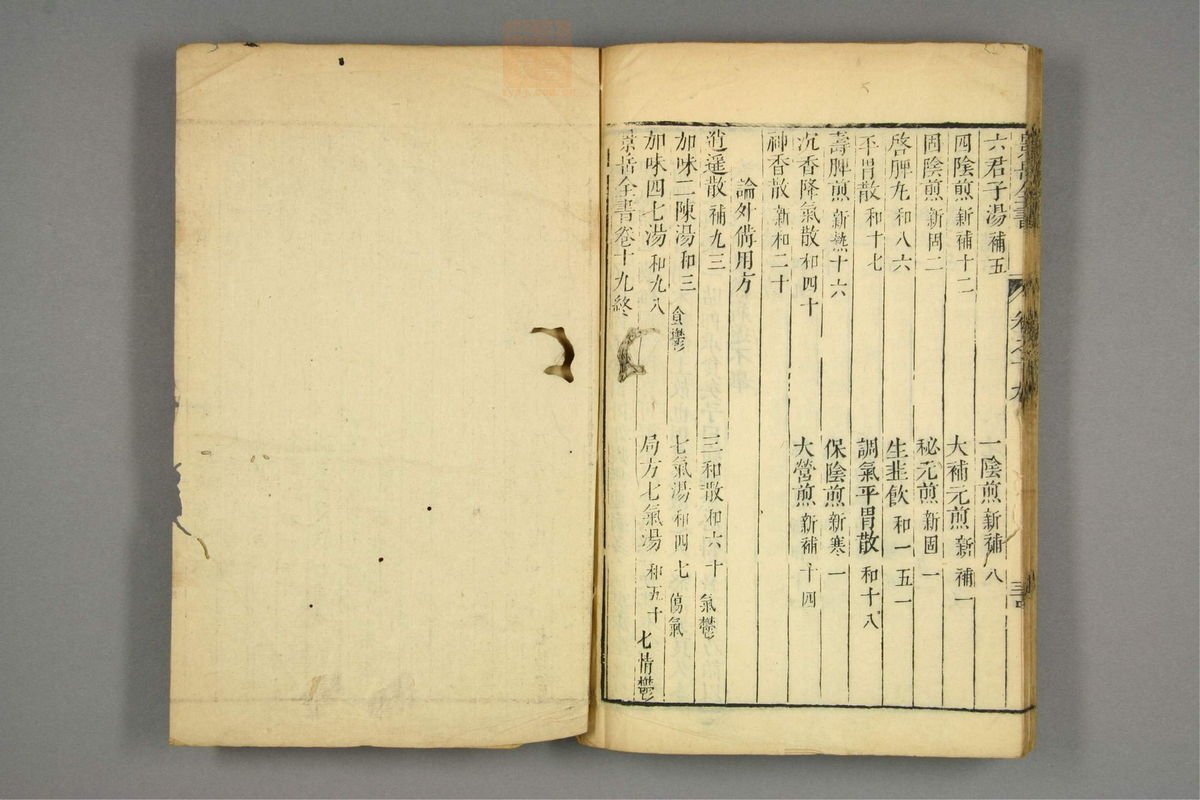 六君子湯 補五 一陰煎 新補八
四陰煎 新補十二 大補元煎 新補一
固陰煎 新固二 秘元煎 新固一
啓脾丸 和八六 生韭飲 和一五一
平胃散 和十七 調氣平胃散 和十八
壽脾煎 新熱十六 保陰煎 新寒一
沉香降氣散 和四十 大營煎 新補十四
神香散 新和二十
論外備用方
逍遥散 補九三 三和散 和六十 氣鬱
加味二陳湯 和三 食鬱 七氣湯 和四七 傷氣
加味四七湯 和九八 局方七氣湯 和五十 七情鬱
景岳全書卷十九終